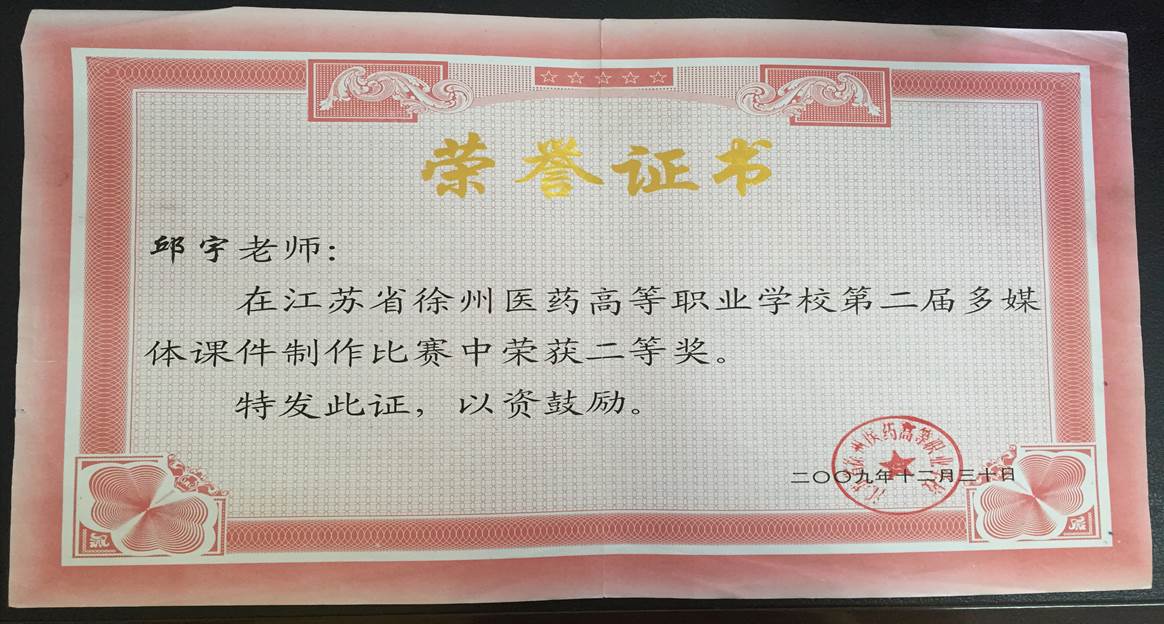 荣誉证书
邱宇老师:
在江苏省徐州医药高等职业学校第二届多媒
体课件制作比赛中荣获二等奖。
特发此证，以资鼓励。
江苏省徐州医药高等职业学校
二〇〇九年十二月三十日